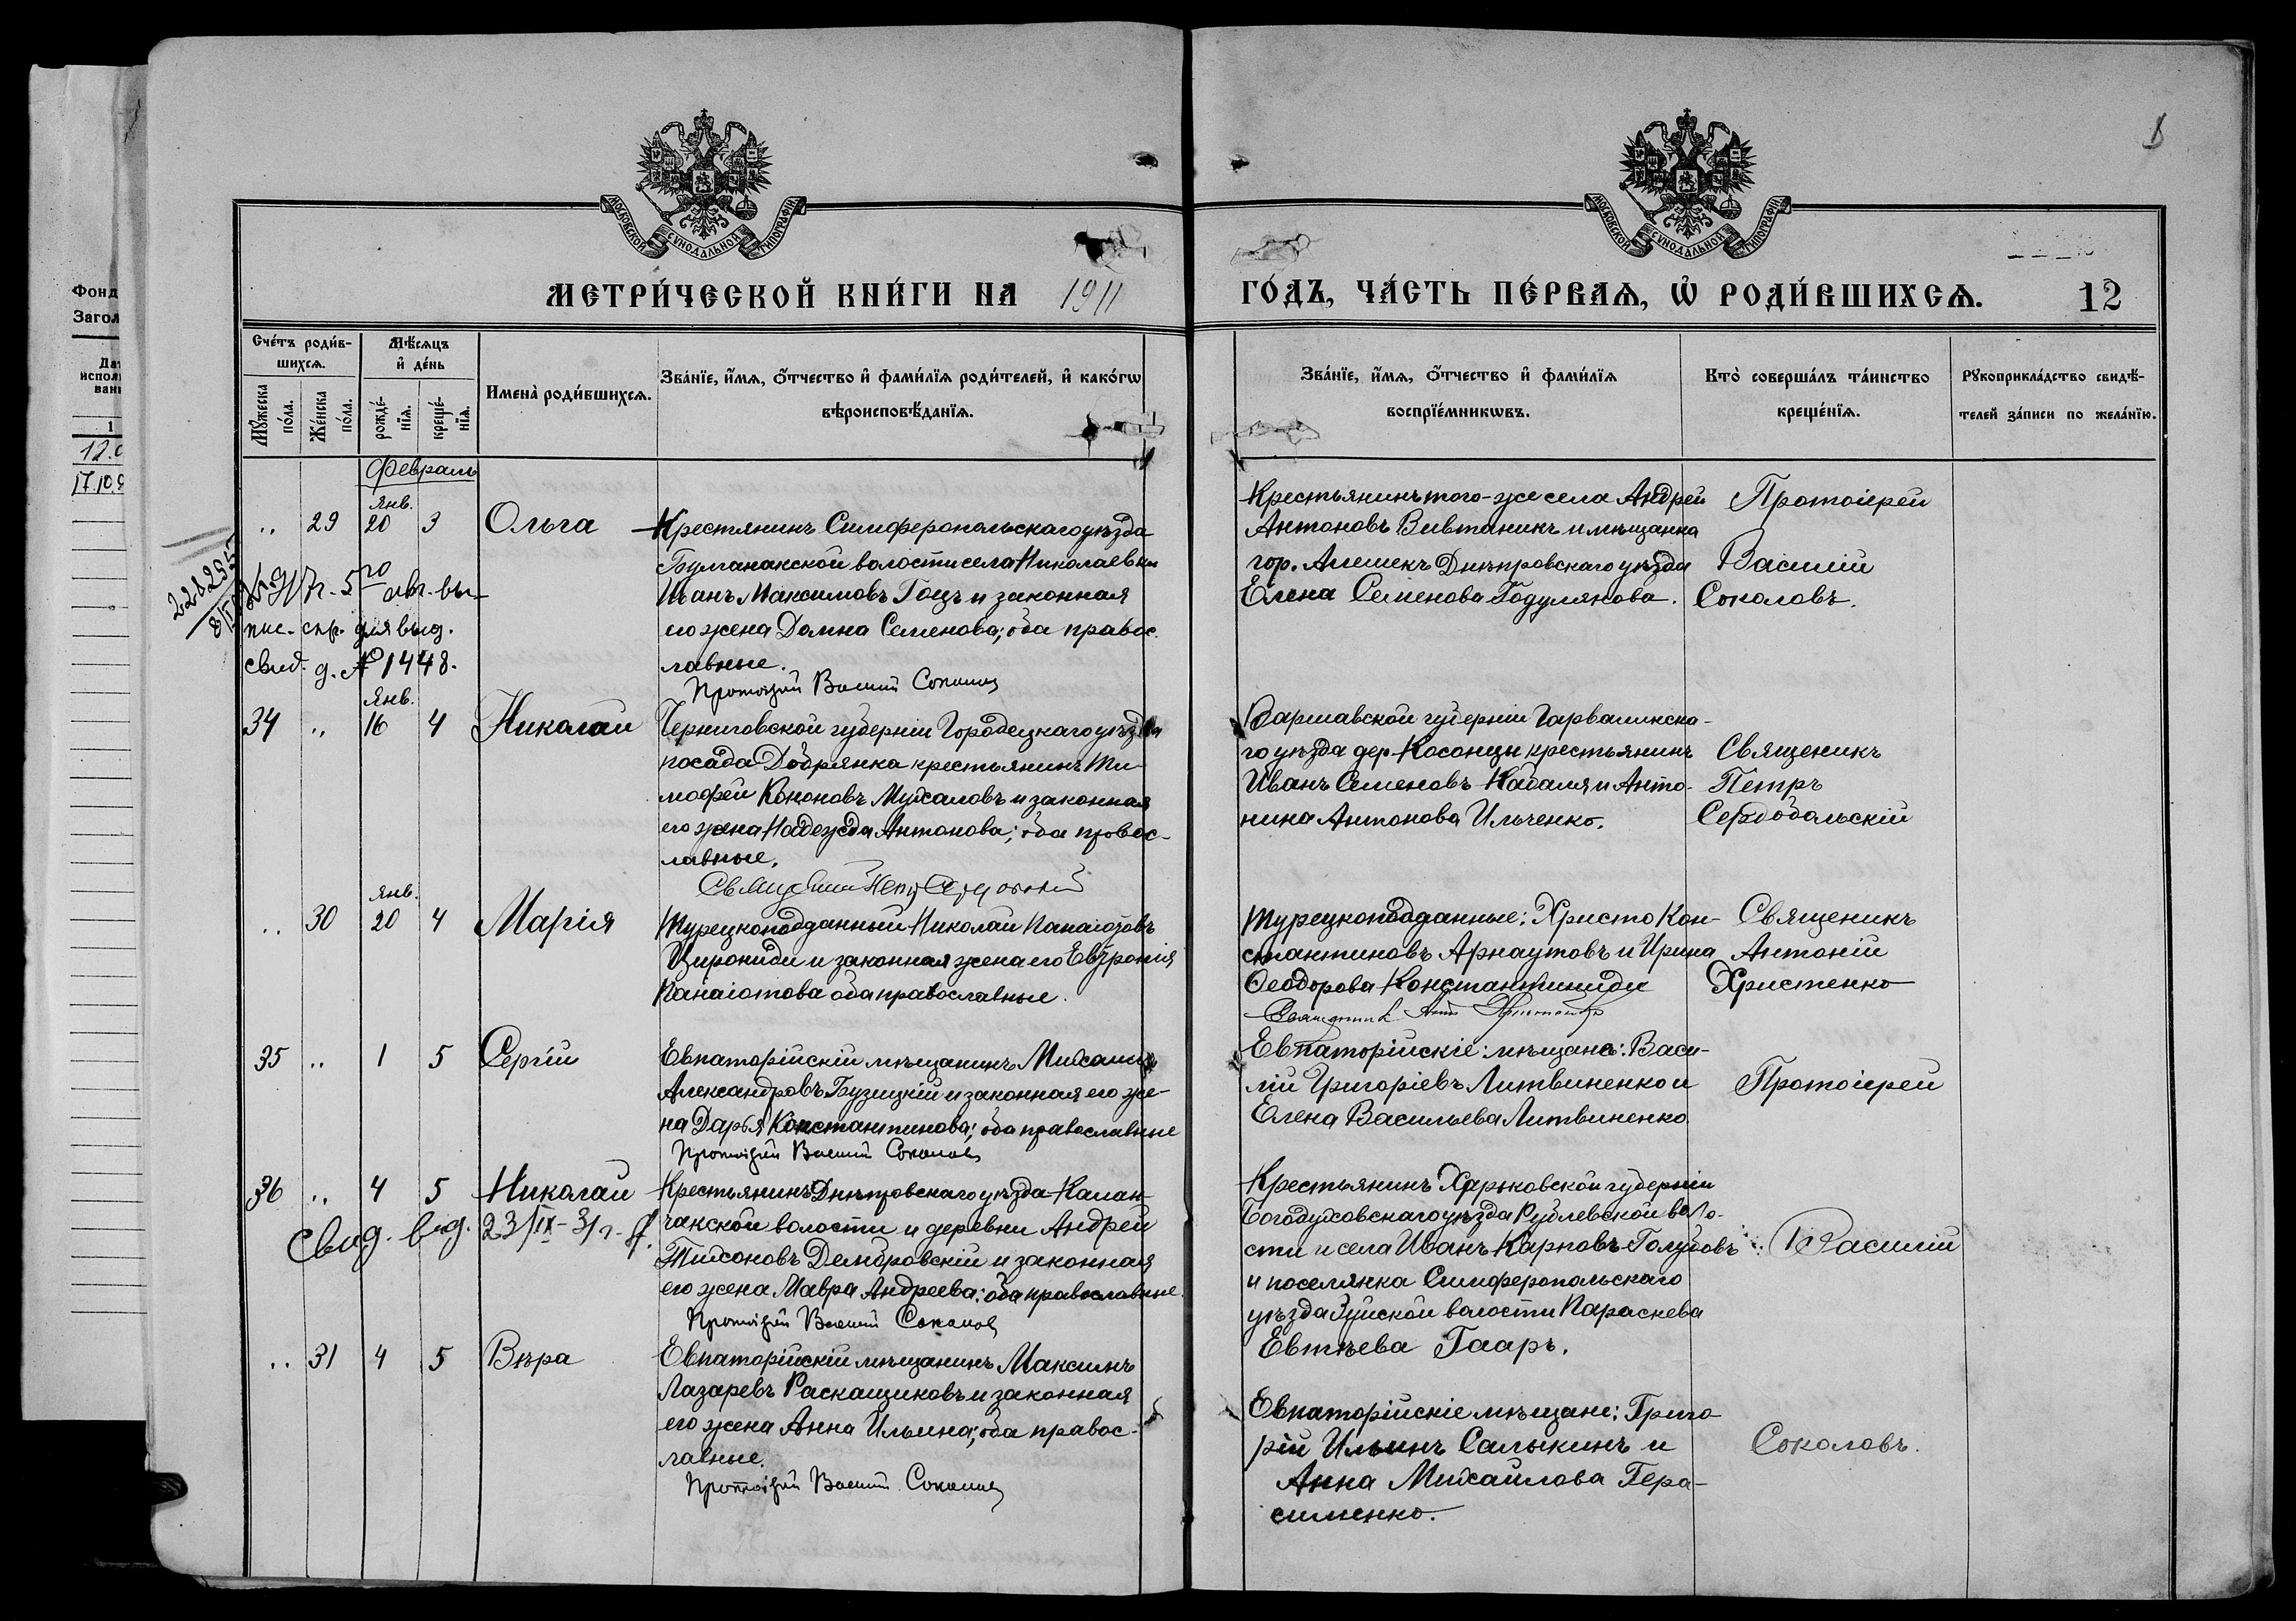 МОСКОВСКОЙ СѴНОДАЛЬНОЙ ТИПОГРАФІИ
МОСКОВСКОЙ СѴНОДАЛЬНОЙ ТИПОГРАФІИ
МЕТРИ́ЧЕСКОЙ КНИ́ГИ НА 1911
ГО́ДЪ, ЧА́СТЬ ПЕ́РВАѦ, Ѡ҆ РОДИ́ВШИХСѦ. 12
Фонд
Загол
1
Сче́тъ роди́в-
шихсѧ.
Мꙋ́жеска
по́ла.
Же́нска
по́ла.
Мѣ́сѧцъ
и҆ де́нь
рожде́-
нїѧ.
креще́-
нїѧ.
Имена̀ роди́вшихсѧ.
Зва́нїе, и҆́мѧ, ѻ҆́тчество и҆ фами́лїѧ роди́телей, и҆ како́гѡ
вѣроисповѣ́данїѧ.
Зва́нїе, и҆́мѧ, ѻ҆́тчество и҆ фами́лїѧ
воспрїе́мникѡвъ.
Кто̀ соверша́лъ та́инство
креще́нїѧ.
Рꙋкоприкла́дство свидѣ́-
телей за́писи по жела́нїю.
Февраль
Янв.
" 29 20 3 Ольга
Крестянинъ Симферопольскаго уѣзда
Булганакской волости села Николаевки
Иванъ Максимовъ Гоцъ и законная
его жена Домна Семенова; оба правос-
лавные.
Протоіерей Василій Соколовъ
Крестьянинъ того-же села Андрей
Антоновъ Вивтаникъ и мѣщанка
гор. Алешекъ Днѣпровскаго уѣзда
Елена Семенова Годулякова.
Протоіерей
Василій
Соколовъ.
228295
5го авг. вы-
пис. спр. для выд.
свид. д. № 1448.
Янв.
34 " 16 4 Николай
Черниговской губерніи Городецкаго уѣзда
посада Добрянка крестьянинъ Ти-
мофей Кононовъ Мухаловъ и законная
его жена Надежда Антонова; оба правос-
лавные.
Варшавской губерніи Гарваликска-
го уѣзда дер. Косонцы крестьянинъ
Иванъ Семеновъ Кабаля и Анто-
нина Антонова Ильченко.
Священикъ
Петръ
Сердобольскій
Янв.
" 30 20 4 Марія
Турецкоподданный Николай Панаіотовъ
Цирониди и законная жена его Евфронія
Панаіотова оба православные.
Турецкоподданные: Христо Кон-
стантиновъ Арнаутовъ и Ирина
Ѳеодорова Константиниди
Священикъ
Антоній
Христенко
35 " 1 5 Сергій
Евпаторійскій мѣщанинъ Михаилъ
Александровъ Бузицкій и законная его же-
на Дарья Константинова; оба православные
Протоіерей Василій Соколовъ
Евпаторійскіе: мѣщане: Васи-
лій Григоріевъ Литвиненко и
Елена Васильева Литвиненко.
Протоіерей
36 " 4 5 Николай
Свид. выд. 23/IX-31 г.
Крестьянинъ Днѣпровскаго уѣзда Калан-
чакской волости и деревни Андрей
Тихоновъ Домбровскій и законная
его жена Мавра Андреева: оба православные.
Протоіерей Василій Соколовъ
Крестьянинъ Харьковской губерніи
Богодуховскаго уѣзда Рублевской воло-
сти и села Иванъ Карповъ Голубовъ
и поселянка Симферопольскаго
уѣзда Зуйской волости Параскева
Евтѣева Гааръ.
Василій
" 31 4 5 Вѣра
Евпаторійскій мѣщанинъ Максимъ
Лазаревъ Раскащиковъ и законная
его жена Анна Ильина; оба правос-
лавные.
Протоіерей Василій Соколовъ
Евпаторійскіе мѣщане: Григо-
рій Ильинъ Салыкинъ и
Анна Михайлова Гера-
сименко.
Соколовъ.